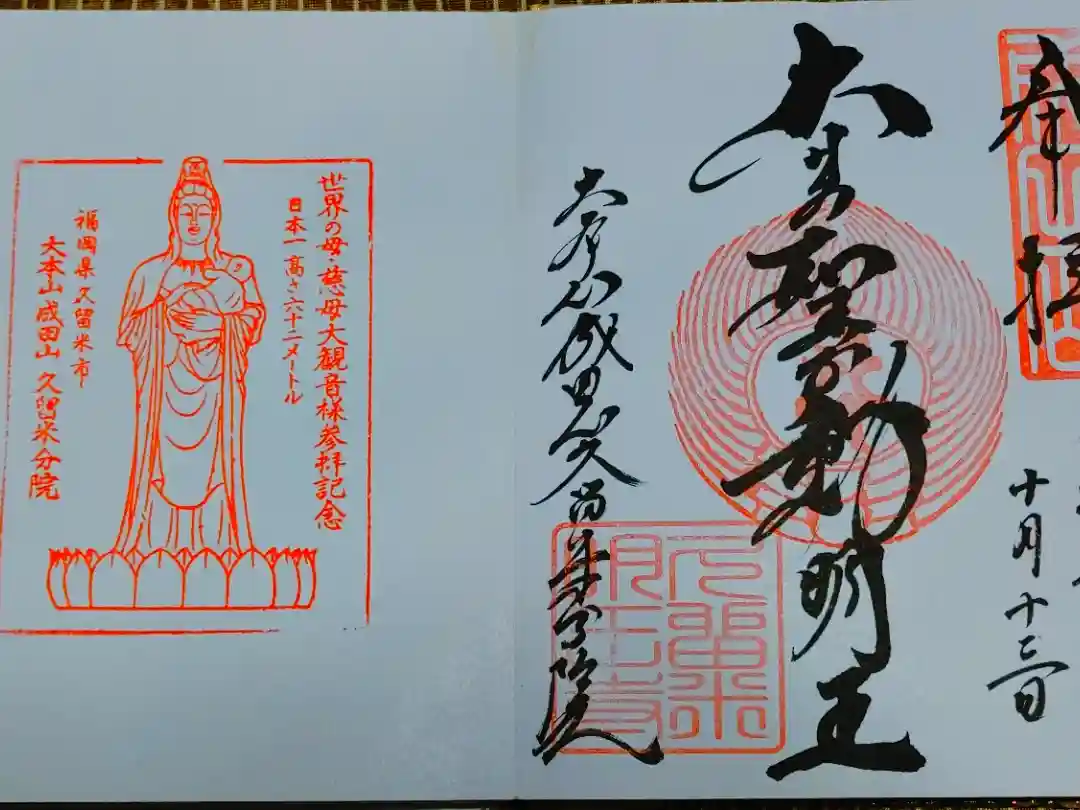 奉拝
十月十三日
大聖不動明王
大本山成田山久留米分院
世界の母・慈母大観音様参拝記念
日本一 高さ六十二メートル
福岡県久留米市
大本山成田山 久留米分院